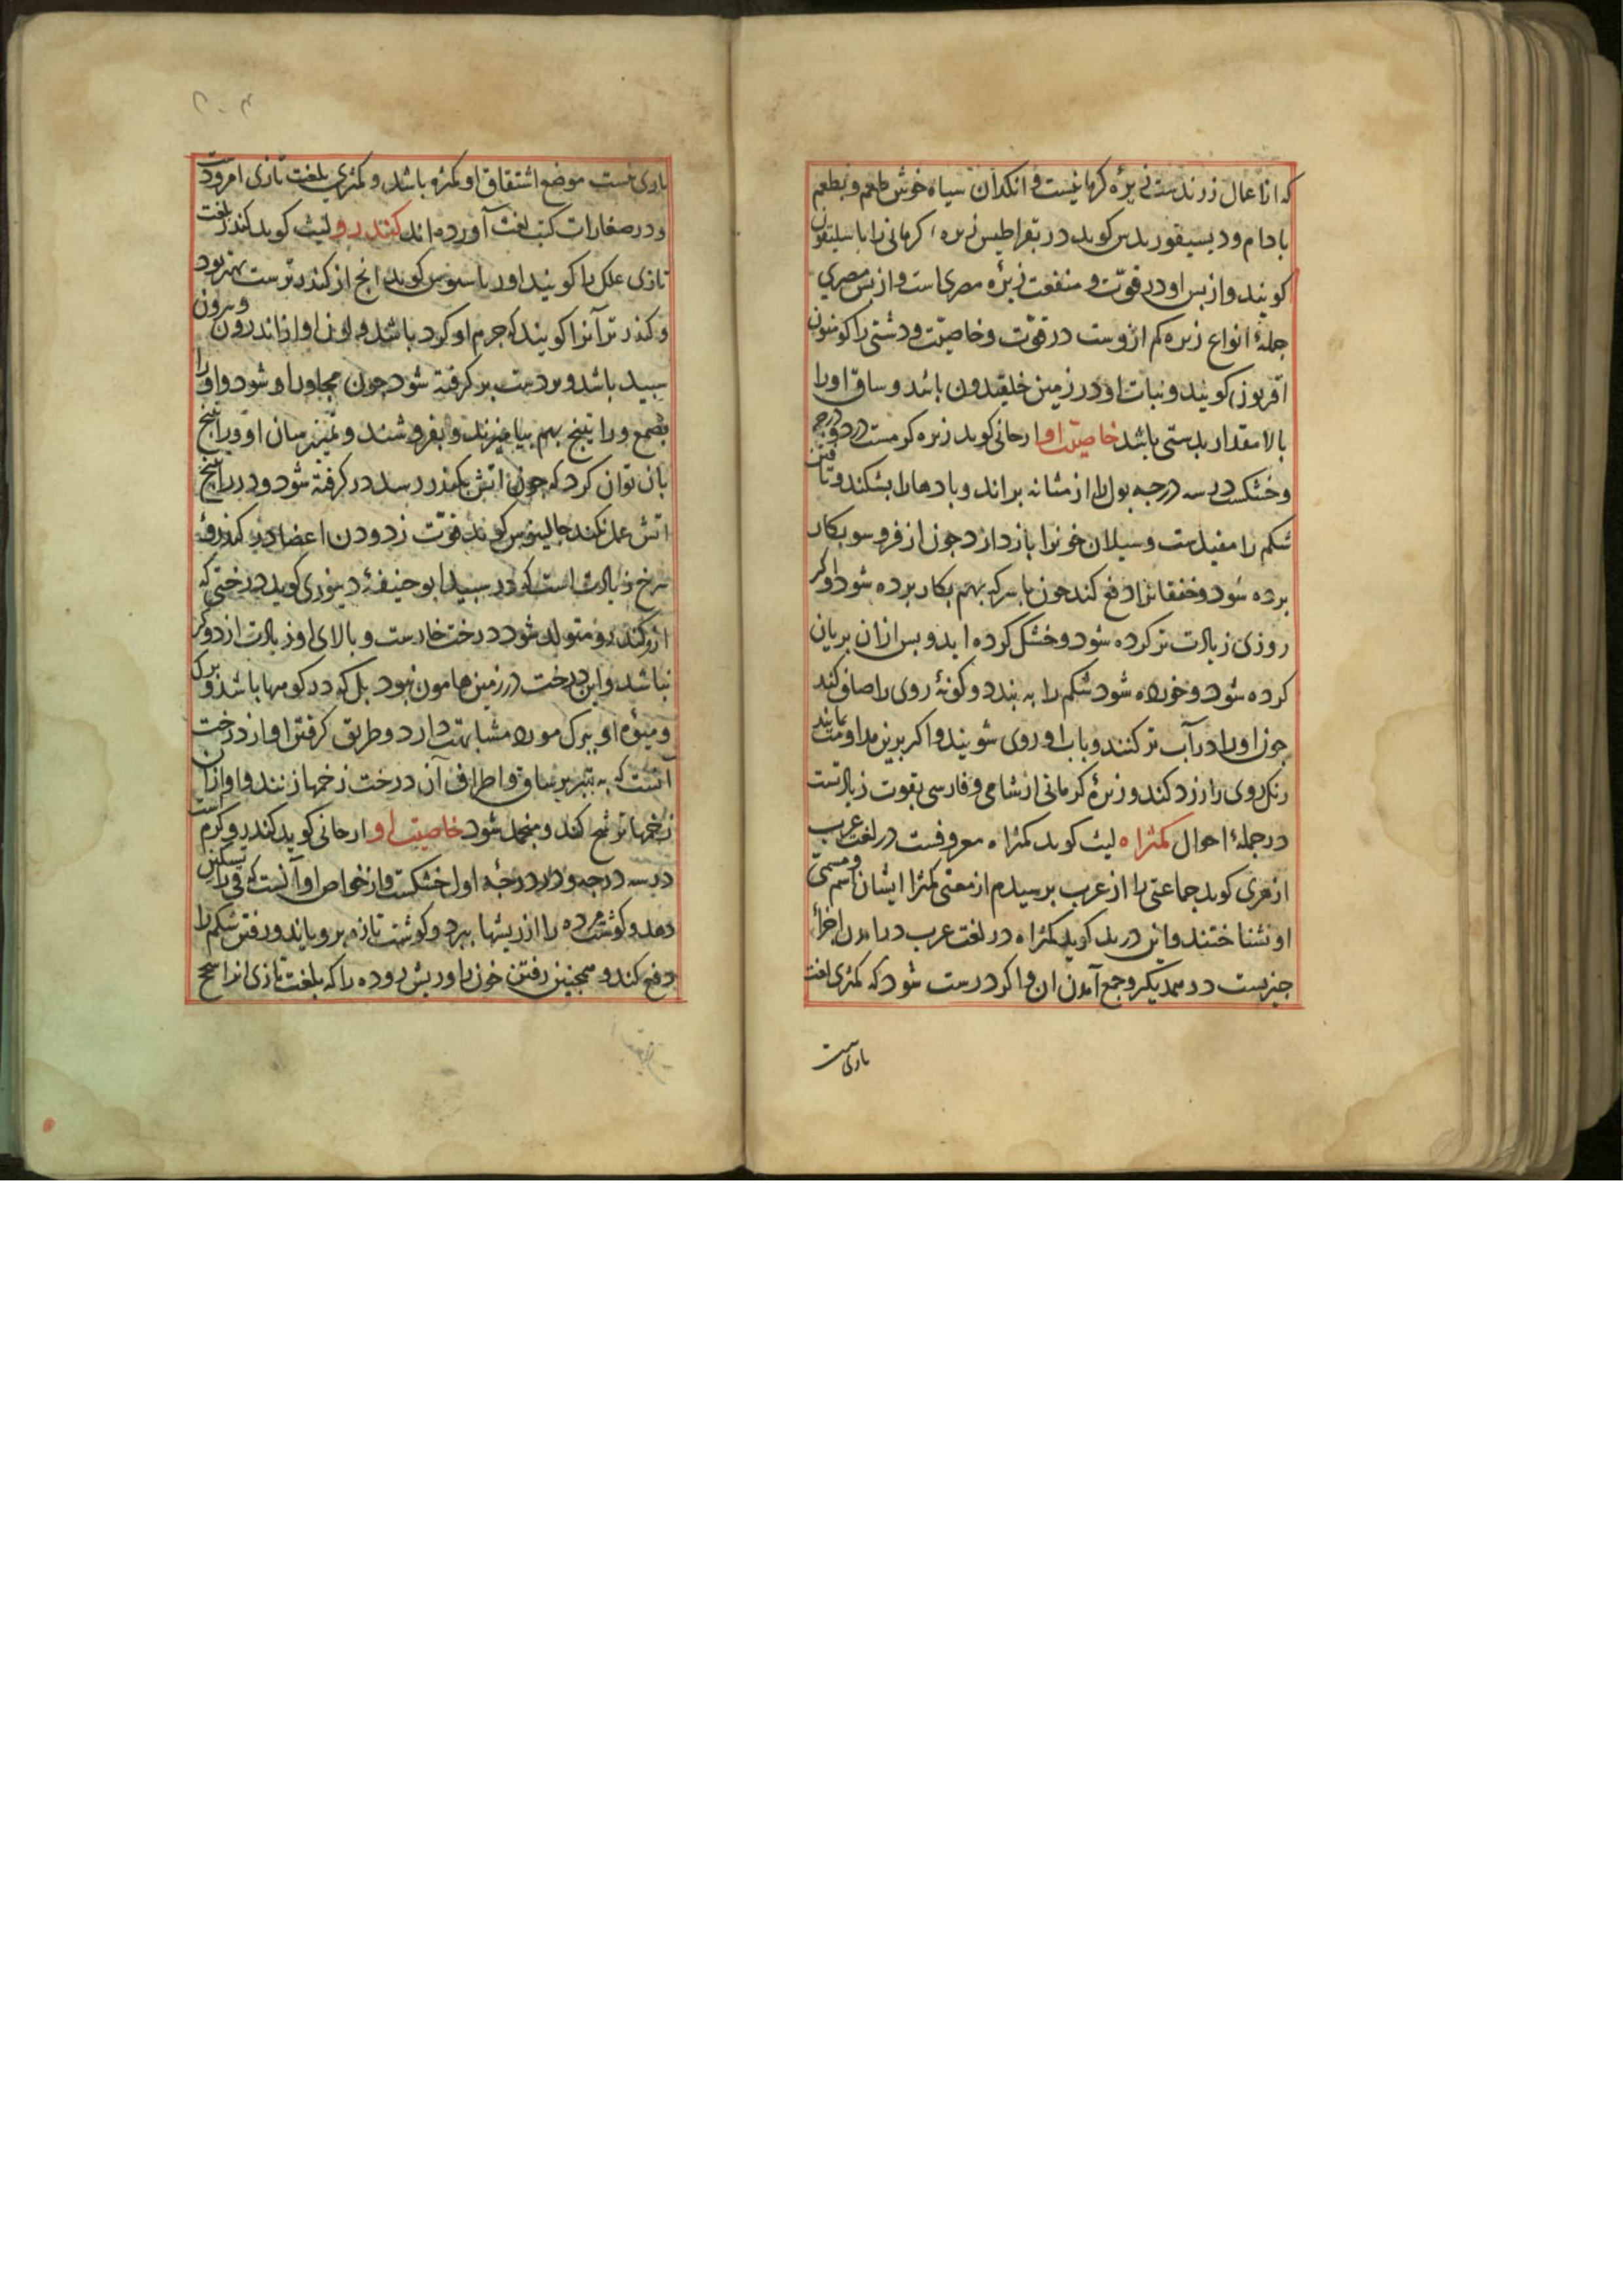 که از اعمال زرندست زیرهٔ کرمانیست و انکدان سیاه خوش طعم و بطعم
بادام و دیسیقوریدس کوید در بقراطیس زیره کرمانی را باسلیقون
کویند و از بس او در قوّت و منفعت زیرهٔ مصری است و از بس مصری
جملهٔ انواع زیره کم ازوست در قوّت و خاصیّت و دشتی را کومنون
اقریون کویند و نبات او در زمین خلقیدون باشد و ساق او را
بالا مقدار بدستی باشد خاصیّت او ارجانی کوید زیره کرمست در دو درجه
و خشکست در سه درجه بول را از مثانه براند و بادها را بشکند و تافتن
شکم را مفیدست و سیلان خونرا باز دارد جون از فروسو بکار
برده شود و خفقانرا دفع کند جون با سرکه بهم بکار برده شود و اکر
روزی زیادت تر کرده شود و خشک کرده اید و بس از ان بریان
کرده شود و خورده شود شکم را به بندد و کونهٔ روی را صافی کند
جون او را در آب تر کنند و باب او روی شویند و اکر برین مداومت نمایند
رنک روی را زرد کند و زیرهٔ کرمانی از شامی و فارسی بقوت زیادتست
در جملهٔ احوال کمثراه لیث کوید کمثراه معروفست در لغت عرب
ازهری کوید جماعتی را از عرب برسیدم از معنی کمثرا ایشان اسم و مسمی
او نشناختند و ابن درید کوید کمثراه در لغت عرب درامدن اجزاء
جیزیست در همدیکر و جمع آمدن ان و اکر درست شود که کمثری لغت
تازی است
تازی است موضع اشتقاق او کمثره باشد و کمثری بلغت تازی امرودست
و در صفارات کتب لغت آورده اند کندرو لیث کوید کندر بلغت
تازی علک را کویند او را باسیوس کوید انج از کندر نرست بهتر بود
و کندر نر آنرا کویند که جرم او کرد باشد و لون او از اندرون و بیرون
سبید باشد و بردست بر کرفته شود جون مجاور او شود و او را
بصمغ و راتینج بهم بیامیزند و بفروشند و تمییز میان او و راتینج
بان توان کرد که جون اتش بکندر رسد در کرفته شود و در راتینج
اتش عمل نکند جالینوس کوید قوّت زدودن اعضا در کندرو
سرخ زیادت است که در سبید ابو حنیفهٔ دینوری کوید درختی که
ازو کندرو متولد شود درخت خارست و بالای او زیادت از دو کز
نباشد و این درخت در زمین هامون نبود بل که در کوهها باشد و برک
و میوهٔ او ببرک مورد مشابهت دارد و طریق کرفتن او از درخت
آنست که به تبر بر ساق و اطراف آن درخت زخمها زنند و او از ان
زخمها ترشح کند و منجمد شود خاصیت او ارجانی کوید کندرو کرمست
در سه درجه و در درجهٔ اول خشکست و از خواص او آنست که قی را تسکین
دهد و کوشت مرده را از ریشها ببرد و کوشت تازه برویاند و رفتن شکم را
دفع کند و همجنین رفتن خون را و ریش روده را که بلغت تازی انرا سحج